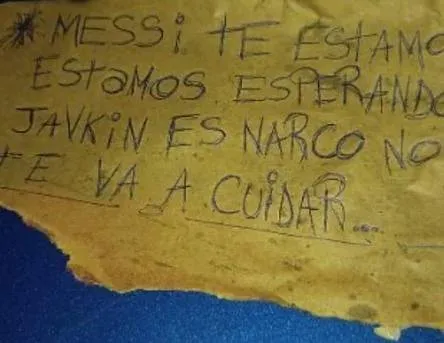 * MESSi TE ESTAMO
ESTAMOS ESPERANDO
JAVKiN ES NARCO NO
TE VA A CUiDAR...